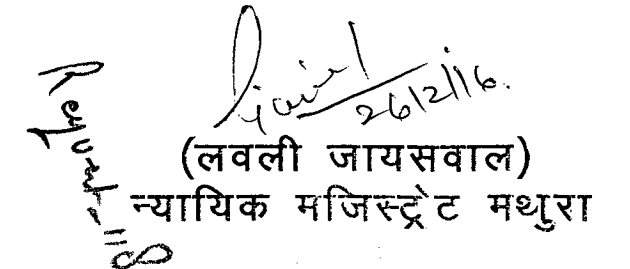 26/2/16.
(लवली जायसवाल)
न्यायिक मजिस्ट्रेट मथुरा